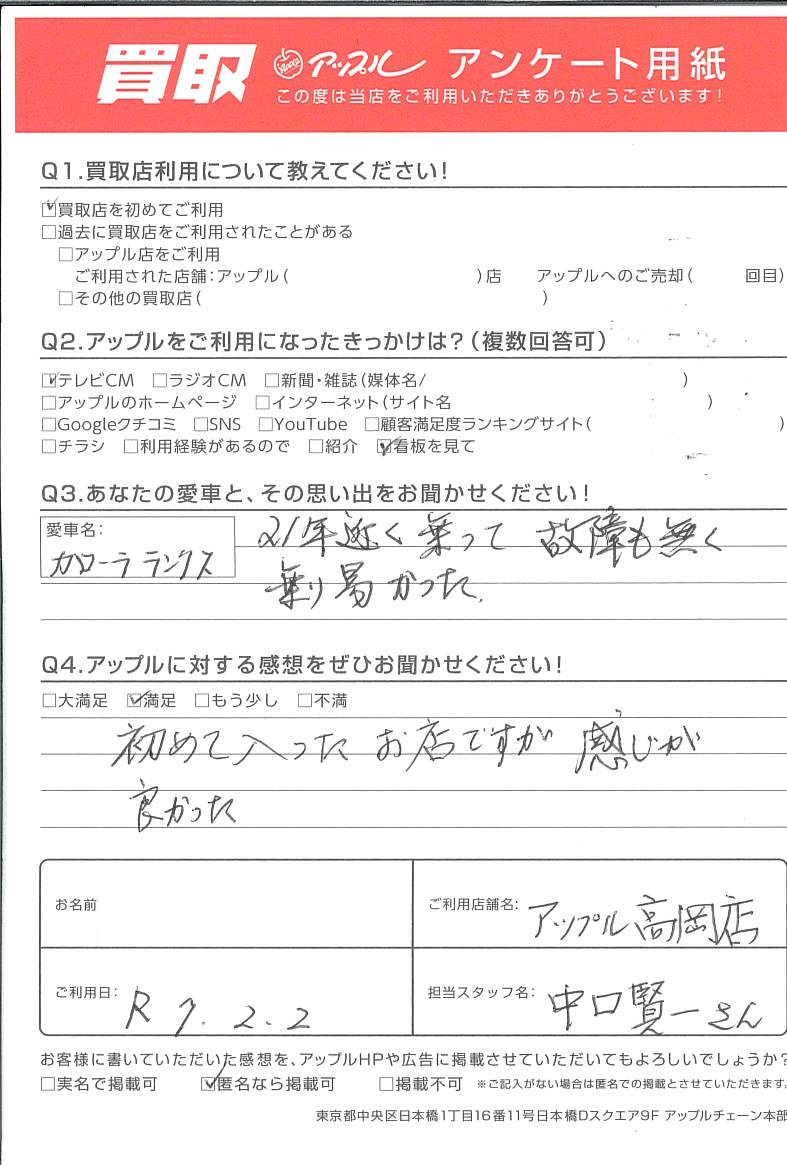 買取 アップル アンケート用紙
この度は当店をご利用いただきありがとうございます!
Q1.買取店利用について教えてください!
☑買取店を初めてご利用
□過去に買取店をご利用されたことがある
□アップル店をご利用
ご利用された店舗:アップル( )店 アップルへのご売却( 回目)
□その他の買取店( )
Q2.アップルをご利用になったきっかけは?(複数回答可)
☑テレビCM □ラジオCM □新聞・雑誌(媒体名/ )
□アップルのホームページ □インターネット(サイト名 )
□Googleクチコミ □SNS □YouTube □顧客満足度ランキングサイト( )
□チラシ □利用経験があるので □紹介 ☑看板を見て
Q3.あなたの愛車と、その思い出をお聞かせください!
愛車名:
カローラランクス
21年近く乗って 故障も無く
乗り易かった.
Q4.アップルに対する感想をぜひお聞かせください!
□大満足 ☑満足 □もう少し □不満
初めて入ったお店ですが 感じが
良かった
お名前
ご利用店舗名: アップル高岡店
ご利用日: R 7. 2. 2
担当スタッフ名: 中口賢一さん
お客様に書いていただいた感想を、アップルHPや広告に掲載させていただいてもよろしいでしょうか?
□実名で掲載可 ☑匿名なら掲載可 □掲載不可 ※ご記入がない場合は匿名での掲載とさせていただきます。
東京都中央区日本橋1丁目16番11号日本橋Dスクエア9F アップルチェーン本部